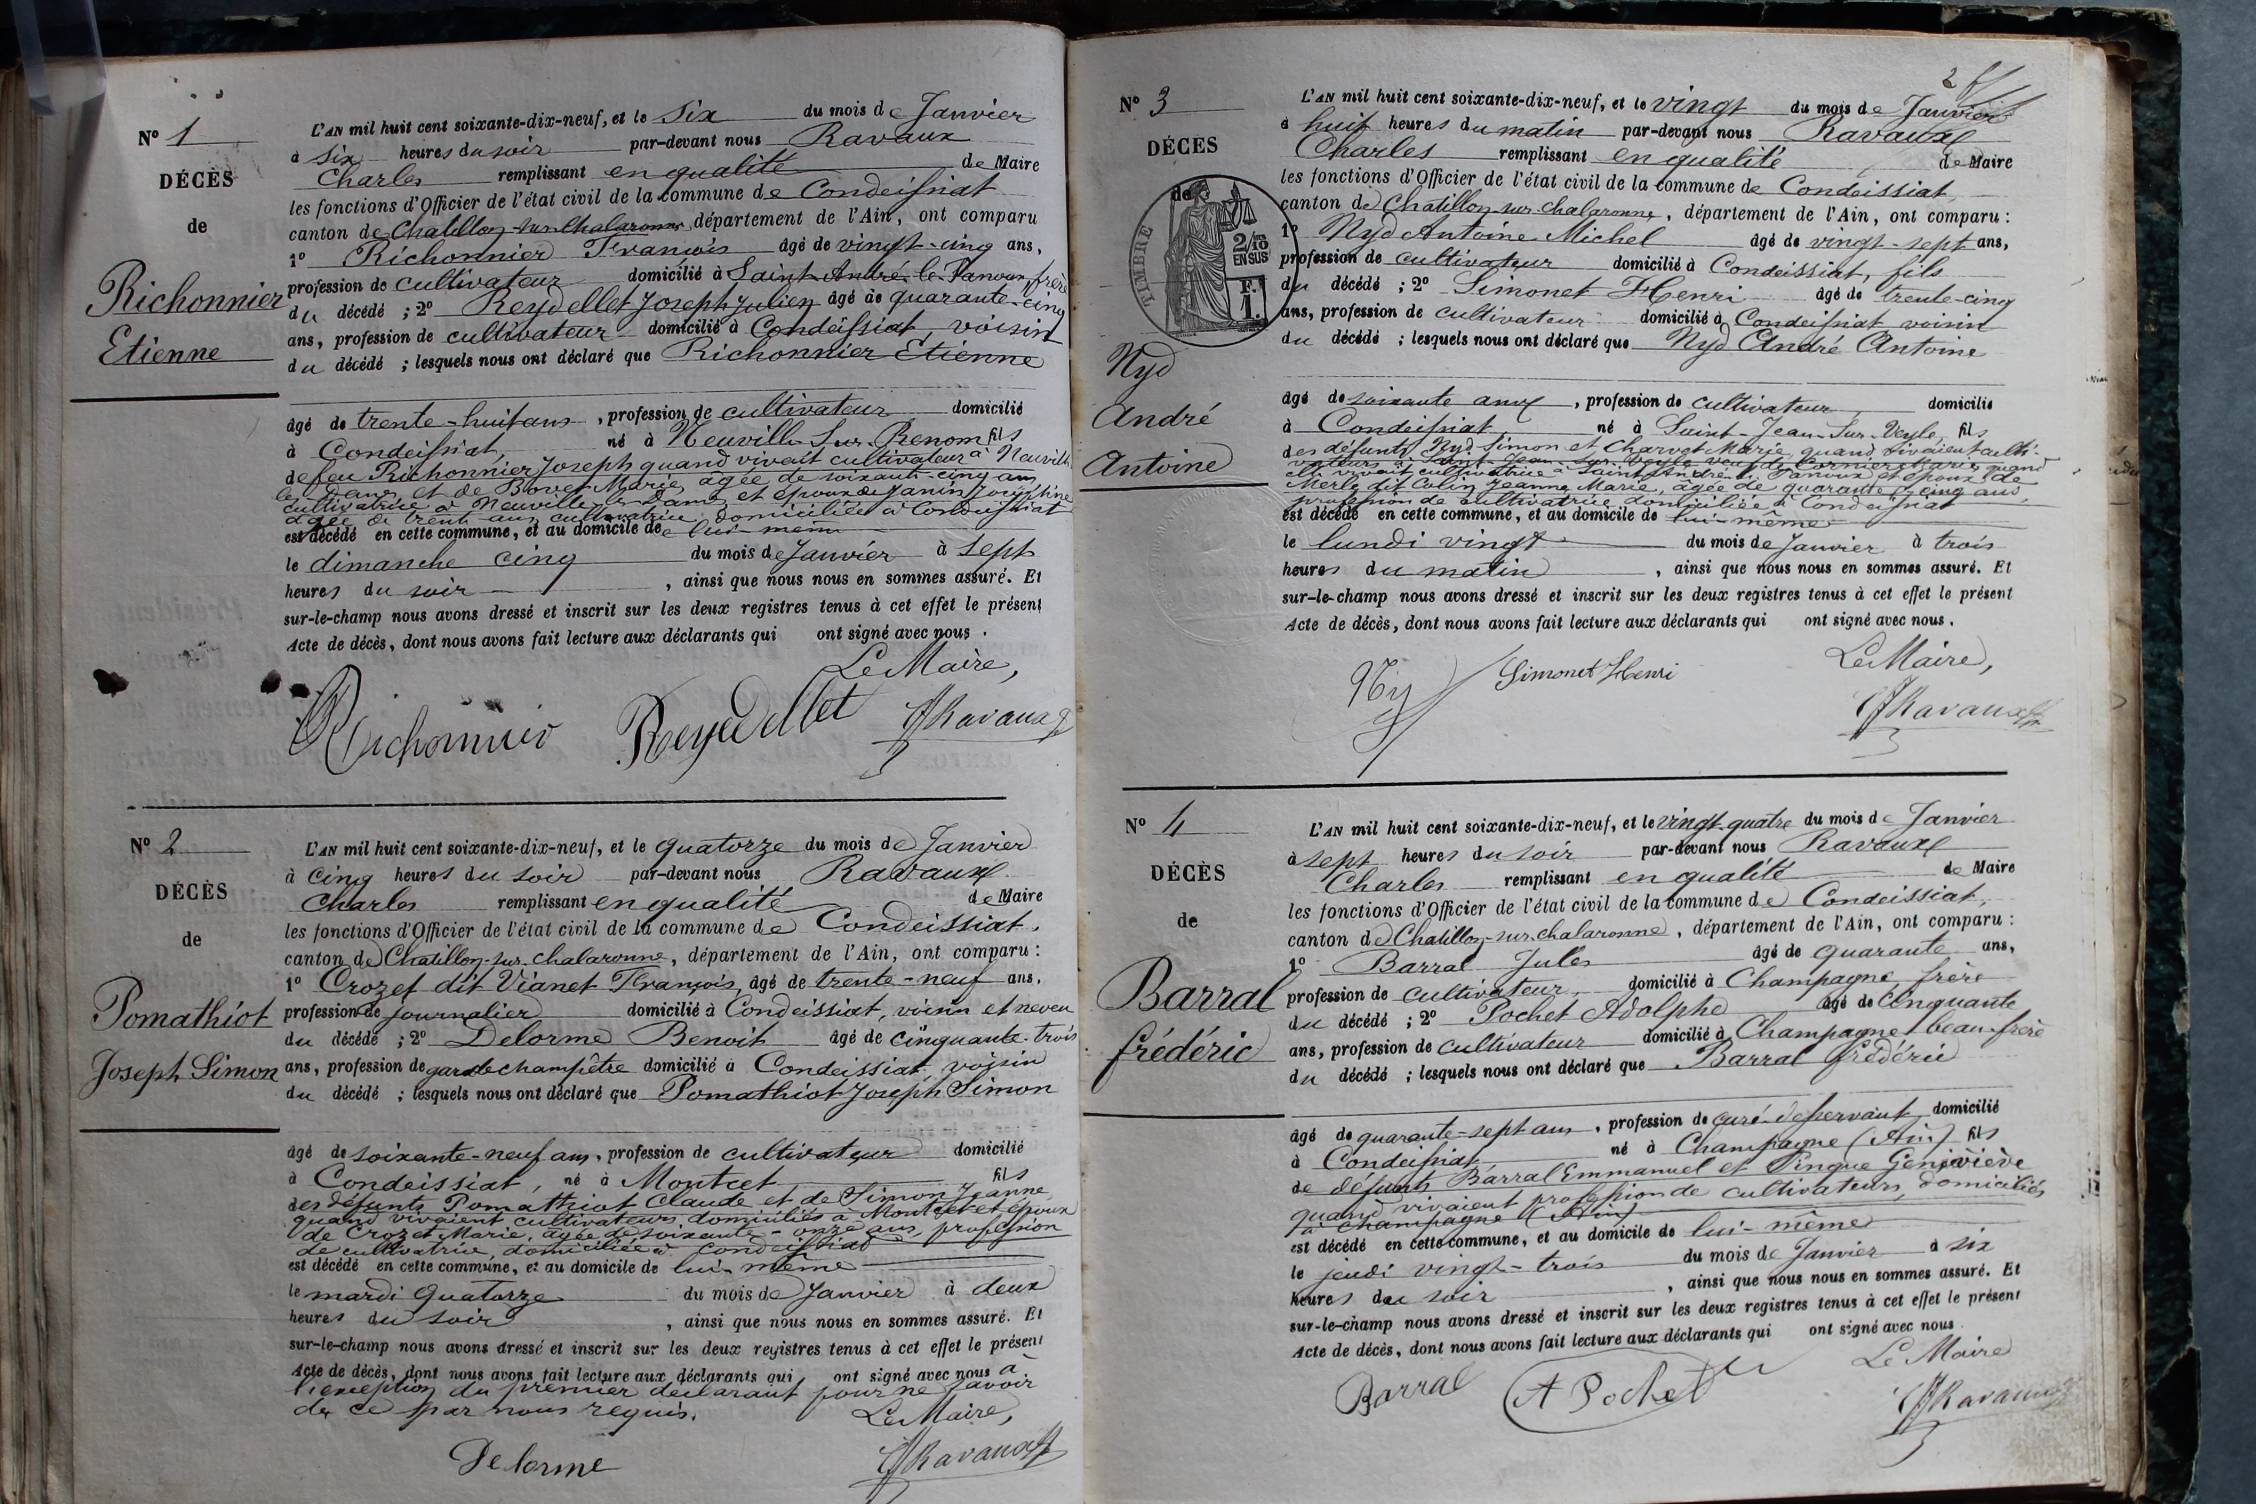 N° 1
DÉCÈS
de
Richonnier
Etienne
L'AN mil huit cent soixante-dix-neuf, et le six du mois de Janvier
à six heures du soir par-devant nous Ravaux
Charles remplissant en qualité de Maire
les fonctions d'Officier de l'état civil de la commune de Condeissiat
canton de Chatillon-sur-Chalaronne, département de l'Ain, ont comparu
1° Richonnier François âgé de vingt-cinq ans,
profession de cultivateur domicilié à Saint-André-le-Panoux frère
du décédé ; 2° Reydellet Joseph Julien âgé de quarante-cinq
ans, profession de cultivateur domicilié à Condeissiat, voisin
du décédé ; lesquels nous ont déclaré que Richonnier Etienne
âgé de trente-huit ans, profession de cultivateur domicilié
à Condeissiat, né à Neuville Sur Renom fils
de feu Richonnier Joseph quand vivait cultivateur à Neuville
les Dames et de Bovet Marie âgée de soixante-cinq ans
cultivatrice à Neuville les Dames et époux de Janin Joséphine
âgée de trente ans cultivatrice domiciliée à Condeissiat
est décédé en cette commune, et au domicile de lui-même
le dimanche cinq du mois de Janvier à sept
heures du soir, ainsi que nous nous en sommes assuré. Et
sur-le-champ nous avons dressé et inscrit sur les deux registres tenus à cet effet le présent
Acte de décès, dont nous avons fait lecture aux déclarants qui ont signé avec nous.
Le Maire,
Richonnier Reydellet Ravaux
N° 2
DÉCÈS
de
Pomathiot
Joseph Simon
L'AN mil huit cent soixante-dix-neuf, et le quatorze du mois de Janvier
à cinq heures du soir par-devant nous Ravaux
Charles remplissant en qualité de Maire
les fonctions d'Officier de l'état civil de la commune de Condeissiat,
canton de Chatillon-sur-Chalaronne, département de l'Ain, ont comparu :
1° Crozet dit Vianet François, âgé de trente-neuf ans,
profession de journalier domicilié à Condeissiat, voisin et neveu
du décédé ; 2° Delorme Benoit âgé de cinquante-trois
ans, profession de garde champêtre domicilié à Condeissiat, voisin
du décédé ; lesquels nous ont déclaré que Pomathiot Joseph Simon
âgé de soixante-neuf ans, profession de cultivateur domicilié
à Condeissiat, né à Montcet fils
des défunts Pomathiot Claude et de Simon Jeanne
quand vivaient cultivateurs domiciliés à Montcet et époux
de Crozet Marie, âgée de soixante-onze ans, profession
de cultivatrice, domiciliée à Condeissiat
est décédé en cette commune, et au domicile de lui-même
le mardi quatorze du mois de Janvier à deux
heures du soir, ainsi que nous nous en sommes assuré. Et
sur-le-champ nous avons dressé et inscrit sur les deux registres tenus à cet effet le présent
Acte de décès, dont nous avons fait lecture aux déclarants qui ont signé avec nous à
l'exception du premier déclarant pour ne savoir
de ce par nous requis.
Le Maire,
Delorme Ravaux
2
N° 3
DÉCÈS
de
TIMBRE
2/10ES
EN SUS
F.
1.
Nyd
André
Antoine
L'AN mil huit cent soixante-dix-neuf, et le vingt du mois de Janvier
à huit heures du matin par-devant nous Ravaux
Charles remplissant en qualité de Maire
les fonctions d'Officier de l'état civil de la commune de Condeissiat,
canton de Chatillon-sur-Chalaronne, département de l'Ain, ont comparu :
1° Nyd Antoine Michel âgé de vingt-sept ans,
profession de cultivateur domicilié à Condeissiat, fils
du décédé ; 2° Simonet Henri âgé de trente-cinq
ans, profession de cultivateur domicilié à Condeissiat voisin
du décédé ; lesquels nous ont déclaré que Nyd André Antoine
âgé de soixante ans, profession de cultivateur, domicilié
à Condeissiat, né à Saint-Jean-Sur-Veyle, fils
des défunts Nyd Simon et Charvet Marie, quand vivaient culti-
vateurs à Saint-Jean-sur-Veyle veuf de Cornier Marie, quand
vivait cultivatrice à Saint André le Panoux et époux de
Merle dit Colin Jeanne Marie, âgée de quarante-cinq ans,
profession de cultivatrice domiciliée à Condeissiat
est décédé en cette commune, et au domicile de lui-même
le lundi vingt du mois de Janvier à trois
heures du matin, ainsi que nous nous en sommes assuré. Et
sur-le-champ nous avons dressé et inscrit sur les deux registres tenus à cet effet le présent
Acte de décès, dont nous avons fait lecture aux déclarants qui ont signé avec nous.
Le Maire,
Nyd Simonet Henri Ravaux
N° 4
DÉCÈS
de
Barral
frédéric
L'AN mil huit cent soixante-dix-neuf, et le vingt-quatre du mois de Janvier
à sept heures du soir par-devant nous Ravaux
Charles remplissant en qualité de Maire
les fonctions d'Officier de l'état civil de la commune de Condeissiat,
canton de Chatillon-sur-Chalaronne, département de l'Ain, ont comparu :
1° Barral Jules âgé de quarante ans,
profession de cultivateur, domicilié à Champagne, frère
du décédé ; 2° Pochet Adolphe âgé de cinquante
ans, profession de cultivateur domicilié à Champagne, beau-frère
du décédé ; lesquels nous ont déclaré que Barral frédéric
âgé de quarante-sept ans, profession de curé desservant, domicilié
à Condeissiat né à Champagne (Ain) fils
de défunts Barral Emmanuel et Pingue Geneviève
quand vivaient profession de cultivateurs, domiciliés
à Champagne (Ain)
est décédé en cette commune, et au domicile de lui-même
le jeudi vingt-trois du mois de Janvier à six
heures du soir, ainsi que nous nous en sommes assuré. Et
sur-le-champ nous avons dressé et inscrit sur les deux registres tenus à cet effet le présent
Acte de décès, dont nous avons fait lecture aux déclarants qui ont signé avec nous
Le Maire
Barral A Pochet Ravaux